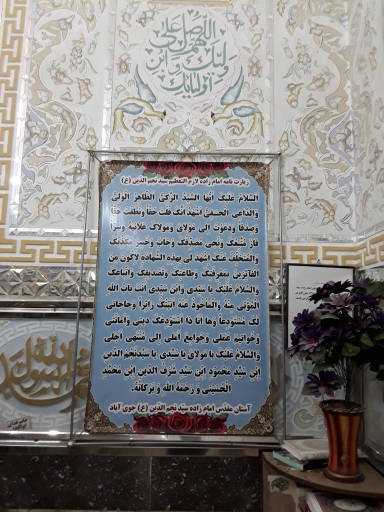 اللهم صل علی
ولیک و ابن
اولیائک
زیارت نامه امام زاده لازم التعظیم سید نجم الدین (ع)
اَلسَّلامُ عَلَیْکَ اَیُّهَا السَّیِّدُ الزَّکِیُّ الطّاهِرُ الْوَلِیُّ
وَالدّاعِی الْحَفِیُّ اَشْهَدُ اَنَّکَ قُلْتَ حَقّاً وَنَطَقْتَ حَقّاً
وَصِدْقاً وَدَعَوْتَ اِلی مَوْلایَ وَمَوْلاکَ عَلانِیَةً وَسِرّاً
فازَ مُتَّبِعُکَ وَنَجی مُصَدِّقُکَ وَخابَ وَخَسِرَ مُکَذِّبُکَ
وَالْمُتَخَلِّفُ عَنْکَ اِشْهَدْ لی بِهذِهِ الشَّهادَةِ لِاَکُونَ مِنَ
الْفائِزینَ بِمَعْرِفَتِکَ وَطاعَتِکَ وَتَصْدیقِکَ وَاتِّباعِکَ
وَالسَّلامُ عَلَیْکَ یا سَیِّدی وَابْنَ سَیِّدی اَنْتَ بابُ اللهِ
الْمُؤْتی مِنْهُ وَالْمَأْخُوذُ عَنْهُ اَتَیْتُکَ زائِراً وَحاجاتی
لَکَ مُسْتَوْدِعاً وَها اَنَا ذا اَسْتَوْدِعُکَ دینی وَاَمانَتی
وَخَواتیمَ عَمَلی وَجَوامِعَ اَمَلی اِلی مُنْتَهی اَجَلی
وَالسَّلامُ عَلَیْکَ یا مَولایَ یا سَیِّدی یا سَیِّدنَجْمُ الدّین
اِبْنِ سَیِّد مَحْمُود اِبْنِ سَیِّد شَرَفُ الدّین اِبْنِ مُحَمَّد
الْحُسَیْنی وَ رَحْمَةُ اللهِ وَ بَرَکاتُهُ.
آستان مقدّس امام زاده سیّد نجم الدّین (ع) جوی آباد